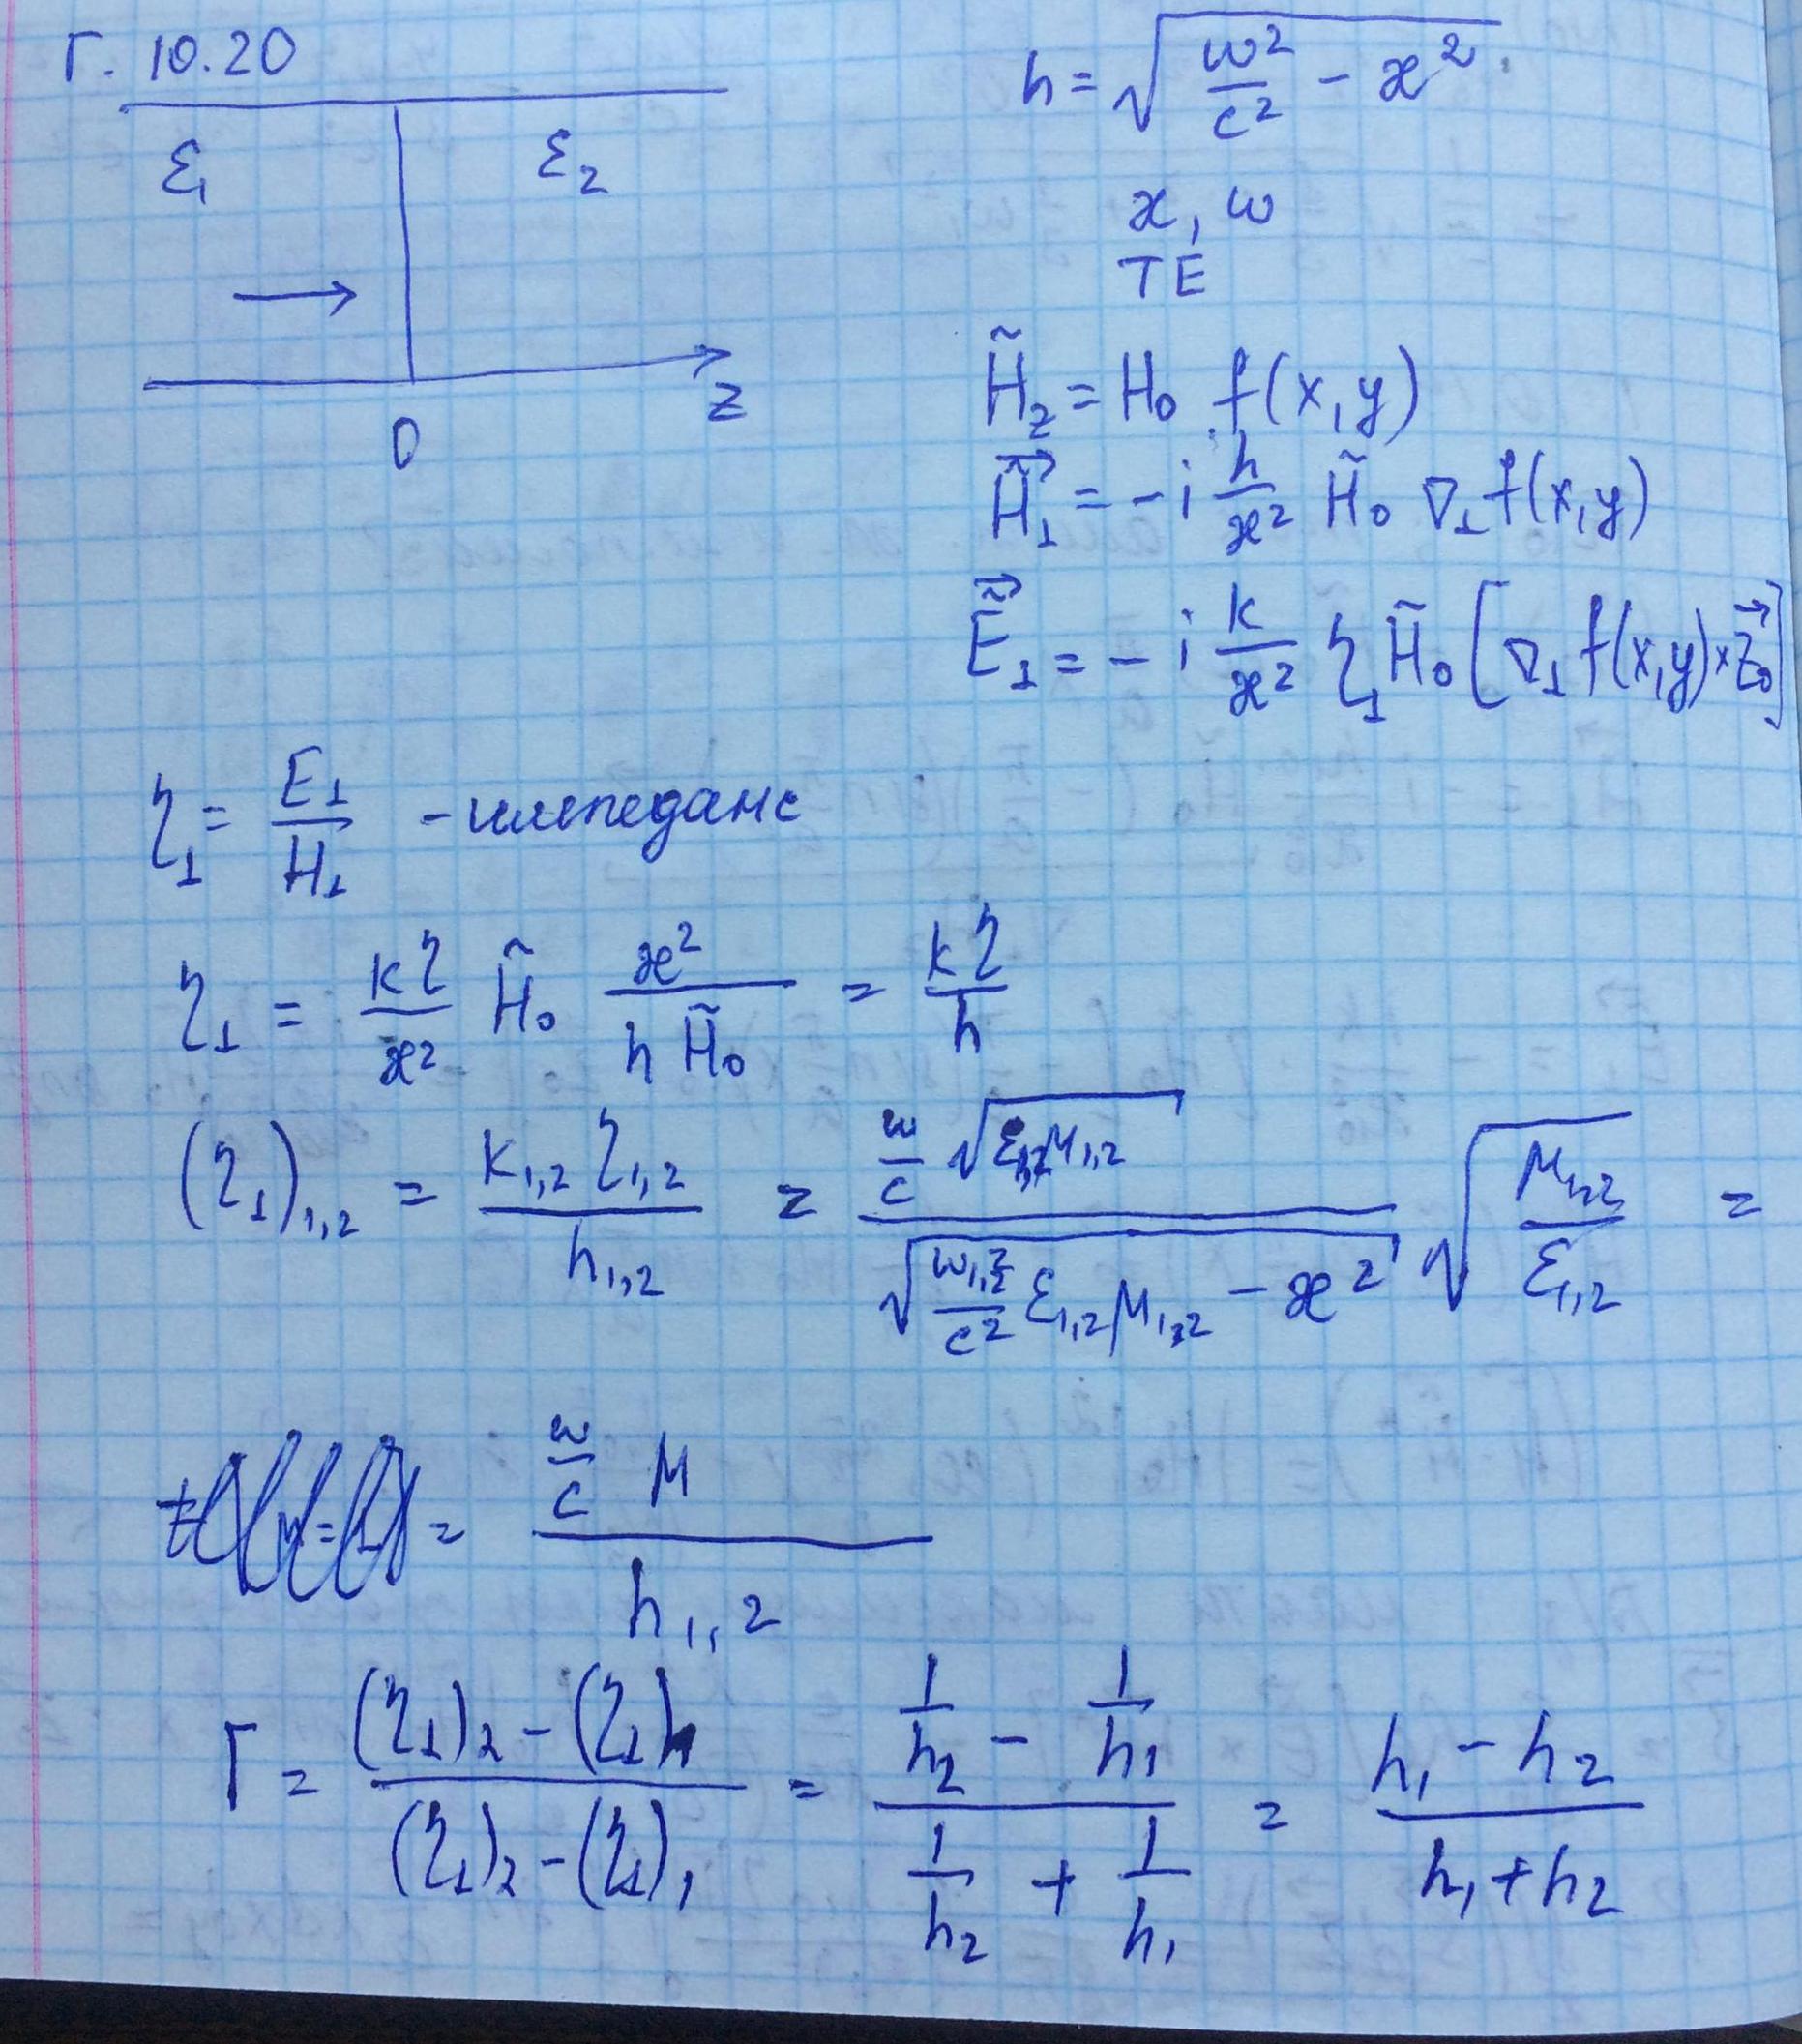 Г. 10.20
ε₁ ε₂
z
0
h = √(ω²/c² − æ²)
æ, ω
TE
H̃_z = H₀ f(x,y)
H̃⃗_⊥ = −i h/æ² H̃₀ ∇_⊥ f(x,y)
Ẽ⃗_⊥ = −i k/æ² η_⊥ H̃₀ [∇_⊥ f(x,y) × z⃗₀]
η_⊥ = E_⊥/H_⊥ – импеданс
η_⊥ = kη/æ² H̃₀ æ²/(h H̃₀) = kη/h
(η_⊥)₁,₂ = k₁,₂ η₁,₂/h₁,₂ = (ω/c √(ε₁,₂μ₁,₂))/√(ω₁,₂²/c² ε₁,₂μ₁,₂ − æ²) √(μ₁,₂/ε₁,₂) =
= (ω/c μ)/h₁,₂
Г = ((η_⊥)₂ − (η_⊥)₁)/((η_⊥)₂ − (η_⊥)₁) = (1/h₂ − 1/h₁)/(1/h₂ + 1/h₁) = (h₁ − h₂)/(h₁ + h₂)